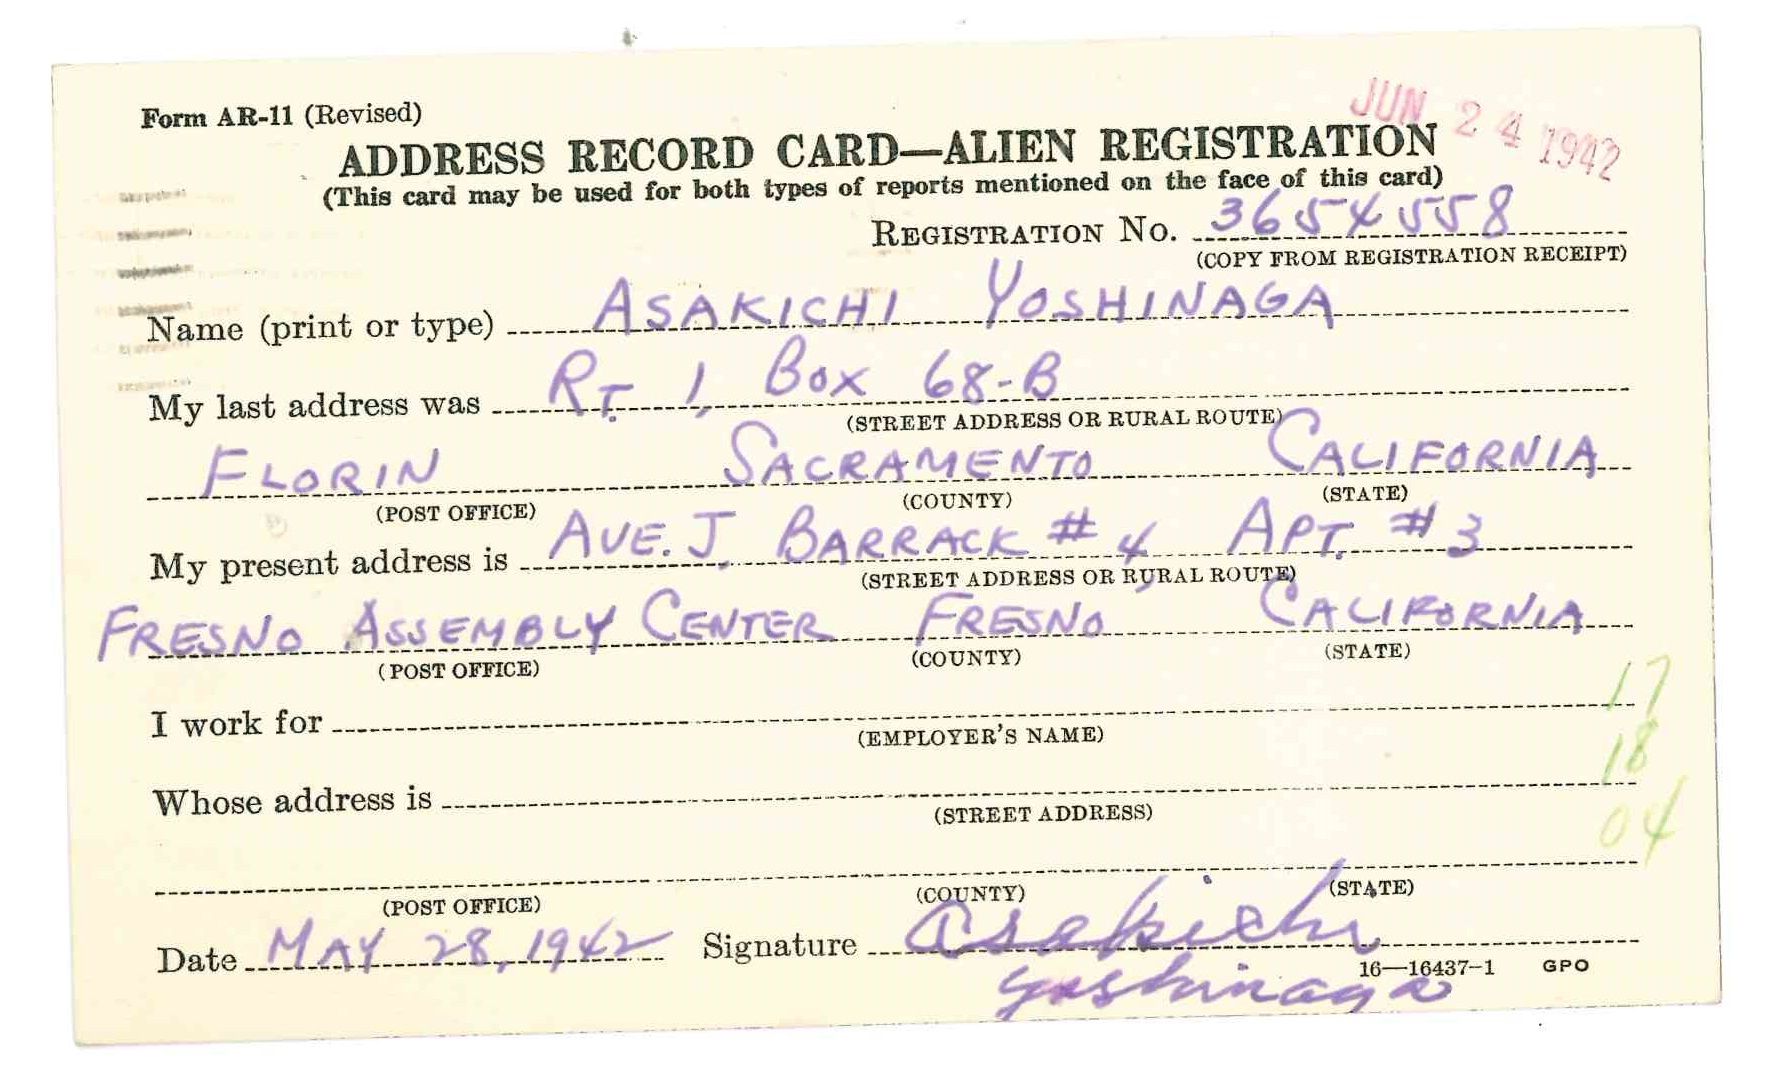 Form AR-11 (Revised)
JUN 24 1942
ADDRESS RECORD CARD—ALIEN REGISTRATION
(This card may be used for both types of reports mentioned on the face of this card)
REGISTRATION No. 3654558
(COPY FROM REGISTRATION RECEIPT)
Name (print or type) ASAKICHI YOSHINAGA
My last address was RT. 1, BOX 68-B
(STREET ADDRESS OR RURAL ROUTE)
FLORIN SACRAMENTO CALIFORNIA
(POST OFFICE) (COUNTY) (STATE)
My present address is AVE. J, BARRACK # 4, APT. # 3
(STREET ADDRESS OR RURAL ROUTE)
FRESNO ASSEMBLY CENTER FRESNO CALIFORNIA
(POST OFFICE) (COUNTY) (STATE)
17
I work for
(EMPLOYER'S NAME)
18
Whose address is
(STREET ADDRESS)
04
(POST OFFICE) (COUNTY) (STATE)
Date MAY 28, 1942 Signature Asakichi
Yoshinaga
16—16437-1 GPO